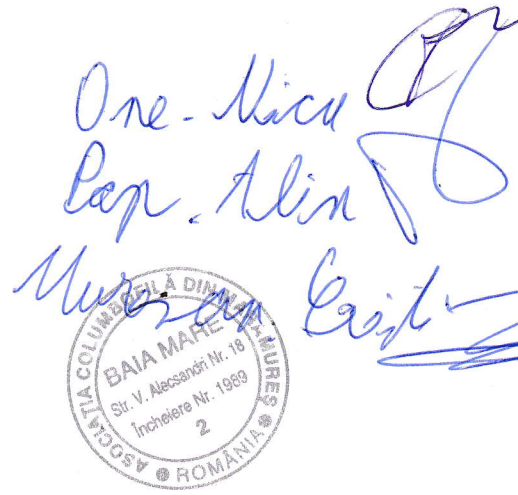 One - Nicu
Pap. Alin
Mureșan
ASOCIAȚIA COLUMBOFILĂ DIN MARAMUREȘ
BAIA MARE
Str. V. Alecsandri Nr. 18
Încheiere Nr. 1989
2
ROMÂNIA